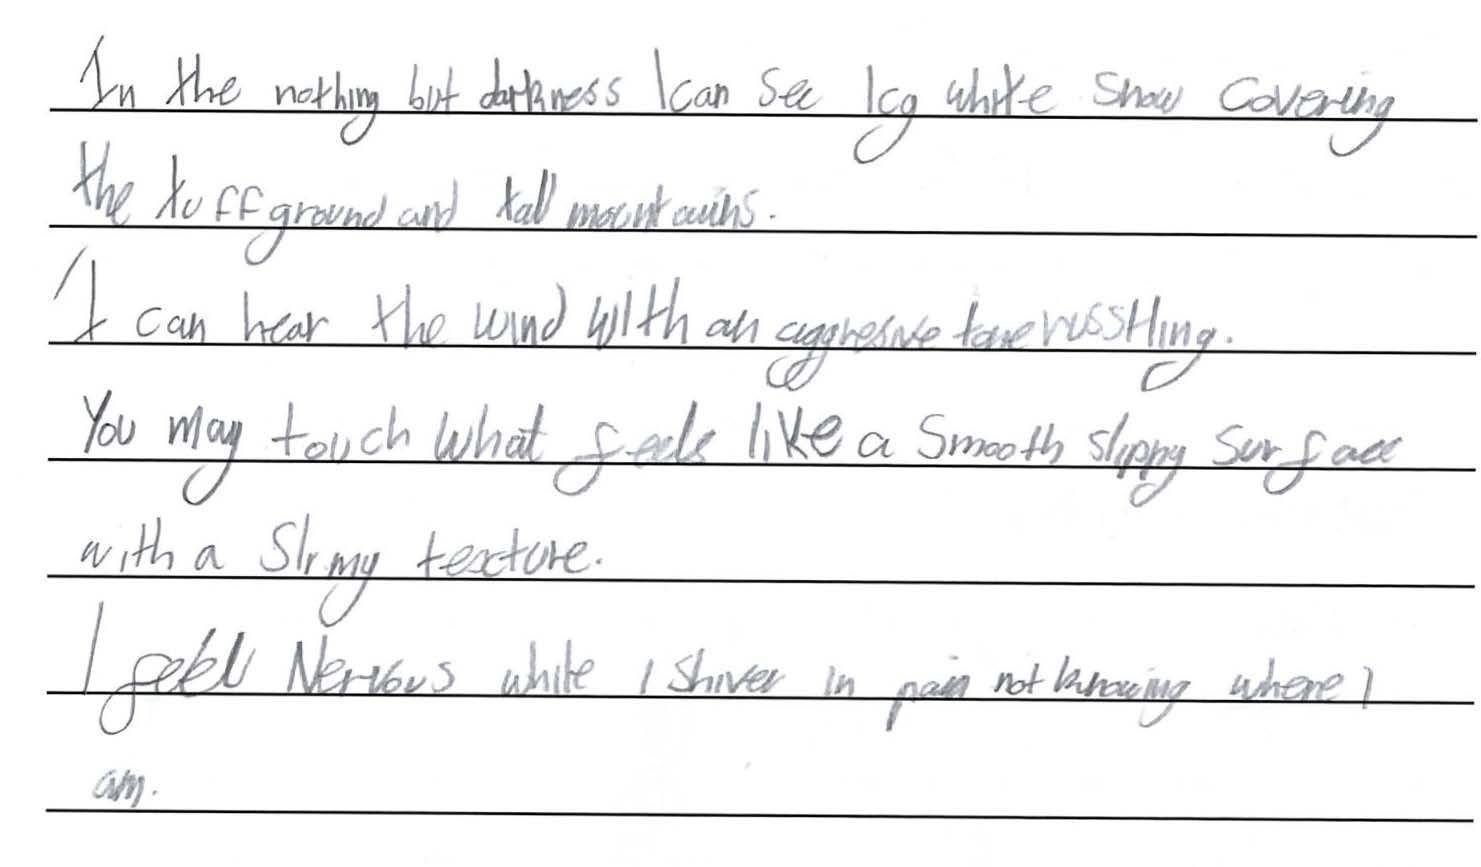 In the nothing but darkness I can see Icy white snow covering
the tuff ground and tall mountains.
I can hear the wind with an aggresive tone russtling.
You may touch what feels like a smooth slippy surface
with a Slimy texture.
I feel Nervous while I shiver in pain not knowing where I
am.